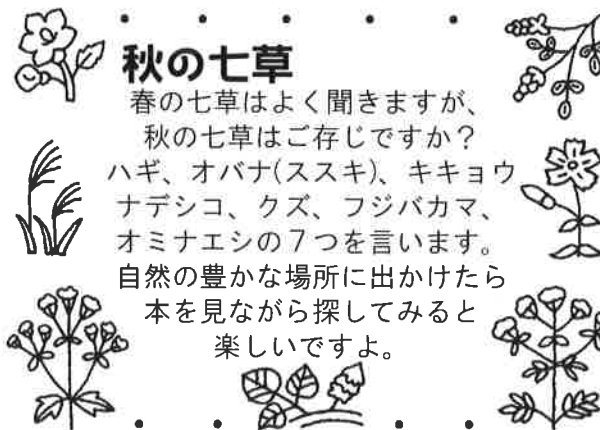 秋の七草
春の七草はよく聞きますが、
秋の七草はご存じですか？
ハギ、オバナ(ススキ)、キキョウ
ナデシコ、クズ、フジバカマ、
オミナエシの７つを言います。
自然の豊かな場所に出かけたら
本を見ながら探してみると
楽しいですよ。